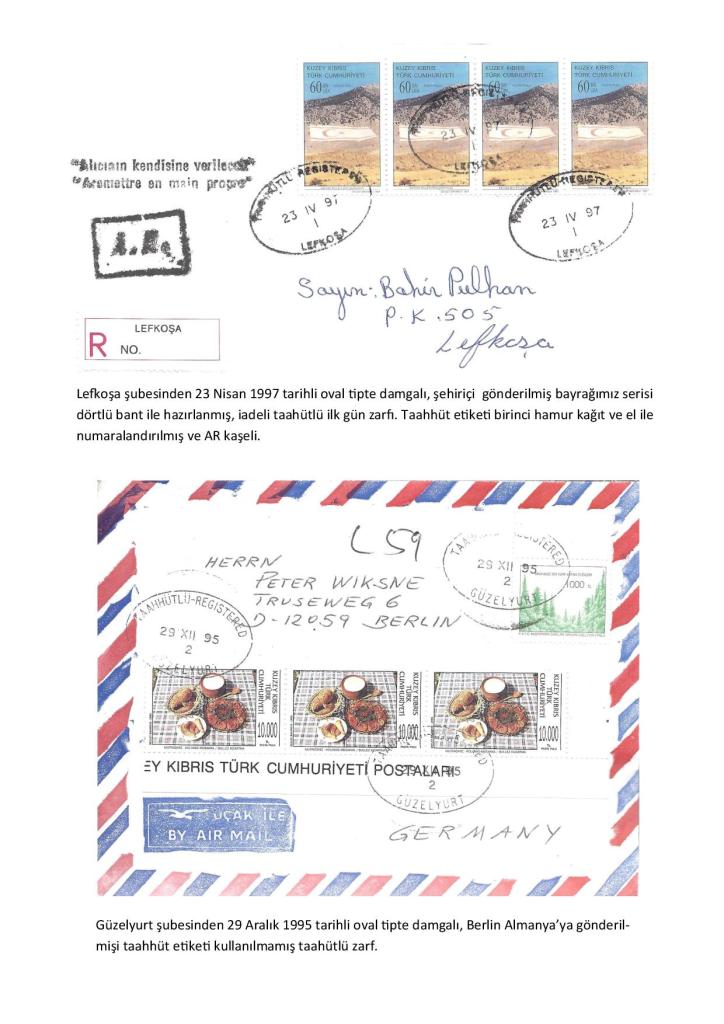 KUZEY KIBRIS
TÜRK CUMHURİYETİ
60
KUZEY KIBRIS
TÜRK CUMHURİYETİ
60
KUZEY KIBRIS
TÜRK CUMHURİYETİ
60
KUZEY KIBRIS
TÜRK CUMHURİYETİ
60
23 IV 97
1
LEFKOŞA
"Alıcının kendisine verilecek"
"Aremettre en main propre"
TAAHHÜTLÜ-REGISTERED
23 IV 97
1
LEFKOŞA
TAAHHÜTLÜ-REGISTERED
23 IV 97
1
LEFKOŞA
A.R.
Sayın: Bahir Pulhan
P.K. 505
Lefkoşa
LEFKOŞA
R NO.
Lefkoşa şubesinden 23 Nisan 1997 tarihli oval tipte damgalı, şehiriçi gönderilmiş bayrağımız serisi
dörtlü bant ile hazırlanmış, iadeli taahütlü ilk gün zarfı. Taahhüt etiketi birinci hamur kağıt ve el ile
numaralandırılmış ve AR kaşeli.
L59
HERRN
PETER WIKSNE
TRUSEWEG 6
D-12059 BERLIN
29 XII 95
2
GÜZELYURT
1000
TAAHHÜTLÜ-REGISTERED
29 XII 95
2
GÜZELYURT
KUZEY KIBRIS
TÜRK
CUMHURİYETİ
10.000
KUZEY KIBRIS
TÜRK
CUMHURİYETİ
10.000
KUZEY KIBRIS
TÜRK
CUMHURİYETİ
10.000
EY KIBRIS TÜRK CUMHURİYETİ POSTALARI
29 XII 95
2
GÜZELYURT
UÇAK İLE
BY AIR MAIL
GERMANY
Güzelyurt şubesinden 29 Aralık 1995 tarihli oval tipte damgalı, Berlin Almanya'ya gönderil-
mişi taahhüt etiketi kullanılmamış taahütlü zarf.